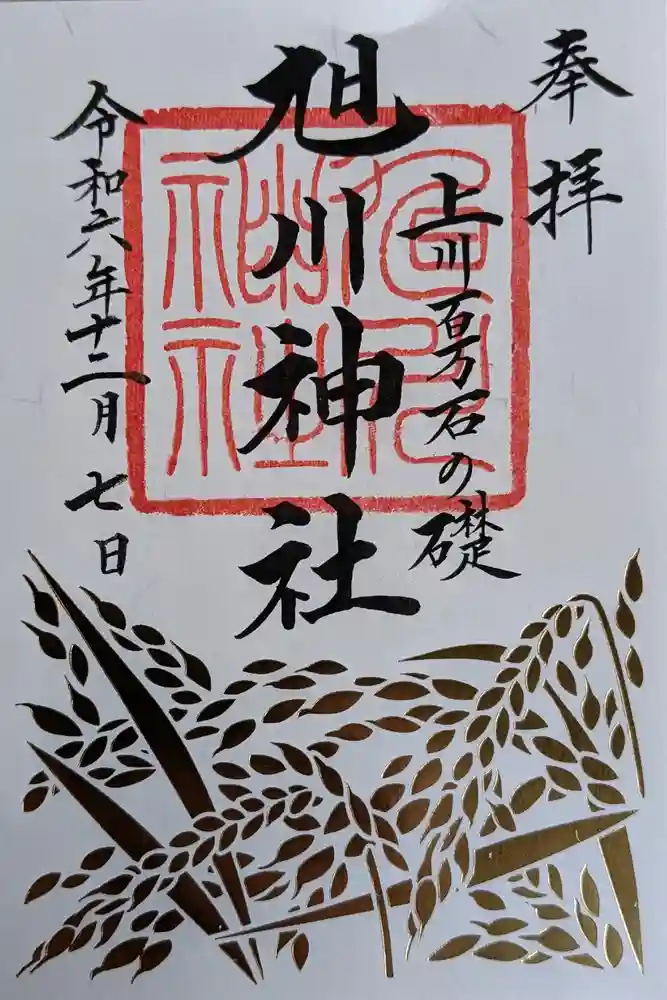 奉拝
上川百万石の礎
旭川神社
令和六年十二月七日